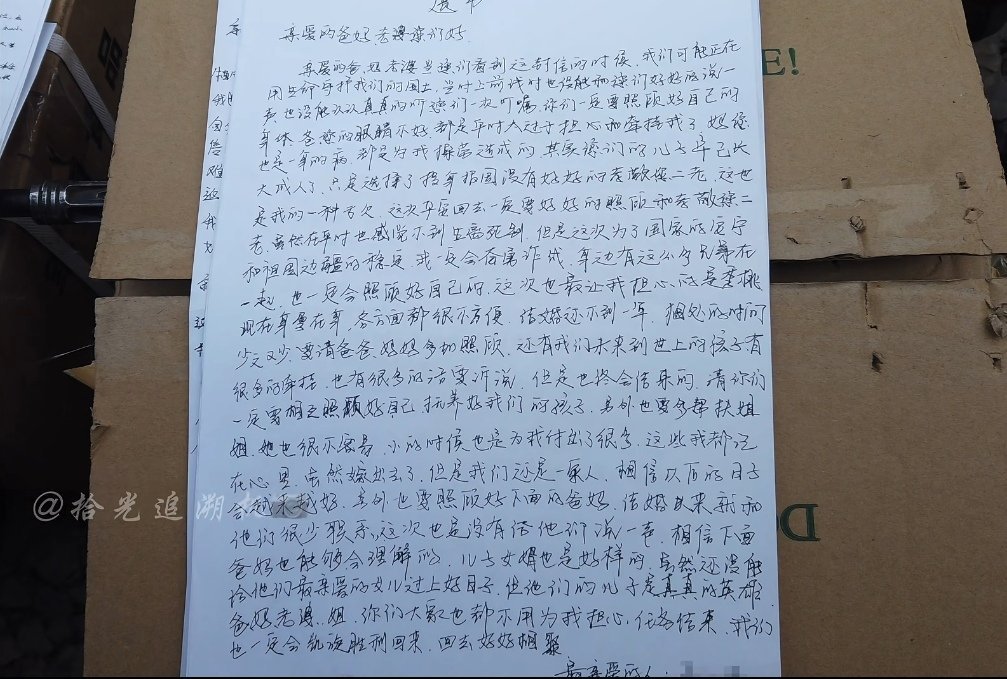 遗书
亲爱的爸妈老婆您们好
亲爱的爸、妈老婆当您们看到这封信的时候，我们可能正在
用生命守护我们的国土，当时上前线时也没能和您们好好的说一
声也没能认认真真的听您们一次叮嘱，你们一定要照顾好自己的
身体，爸爸的眼睛不好都是平时太过于担心而牵挂我了，妈您
也是一身的病，都是为我操劳造成的，其实您们的儿子早已长
大成人了，只是选择了投身报国没有好好的孝敬您二老，这也
是我的一种亏欠，这次平安回去一定要好好的照顾和孝敬您二
老，虽然在平时也感觉不到生离死别，但是这次为了国家的安宁
和祖国边疆的稳定，我一定会奋勇作战，身边有这么多兄弟在
一起，也一定会照顾好自己的，这次也最让我担心的是
现在身孕在身，各方面都很不方便，结婚还不到一年，相处的时间
少之又少，要请爸爸、妈妈多加照顾，还有我们未来到世上的孩子有
很多的牵挂，也有很多的话要诉说，但是也终会结束的，请你们
一定要相互照顾好自己，抚养好我们的孩子，另外也要多帮扶姐
姐，她也很不容易，小的时候也是为我付出了很多，这些我都记
在心里，虽然嫁出去了，但是我们还是一家人，相信以后的日子
会越来越好，另外也要照顾好下面的爸妈，结婚以来就和
他们很少联系，这次也是没有给他们说一声，相信下面
爸妈也能够会理解的，儿子女婿也是好样的，虽然还没能
给他们最亲爱的女儿过上好日子，但他们的儿子是真真的英雄，
爸妈老婆、姐，你们大家也都不用为我担心，任务结束，我们
也一定会凯旋胜利回来，回去好好相聚
最亲爱的人：
@拾光追溯
E!
D